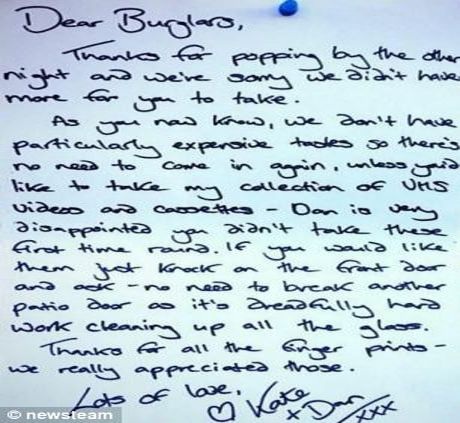 Dear Burglars,
Thanks for popping by the other
night and we're sorry we didn't have
more for you to take.
As you now know, we don't have
particularly expensive tastes so there's
no need to come in again, unless you'd
like to take my collection of VHS
videos and cassettes - Dan is very
disappointed you didn't take these
first time round. If you would like
them just knock on the front door
and ask - no need to break another
patio door as it's dreadfully hard
work cleaning up all the glass.
Thanks for all the finger prints -
we really appreciated those.
Lots of love,
♡ Kate
+ Dan xxx
© newsteam